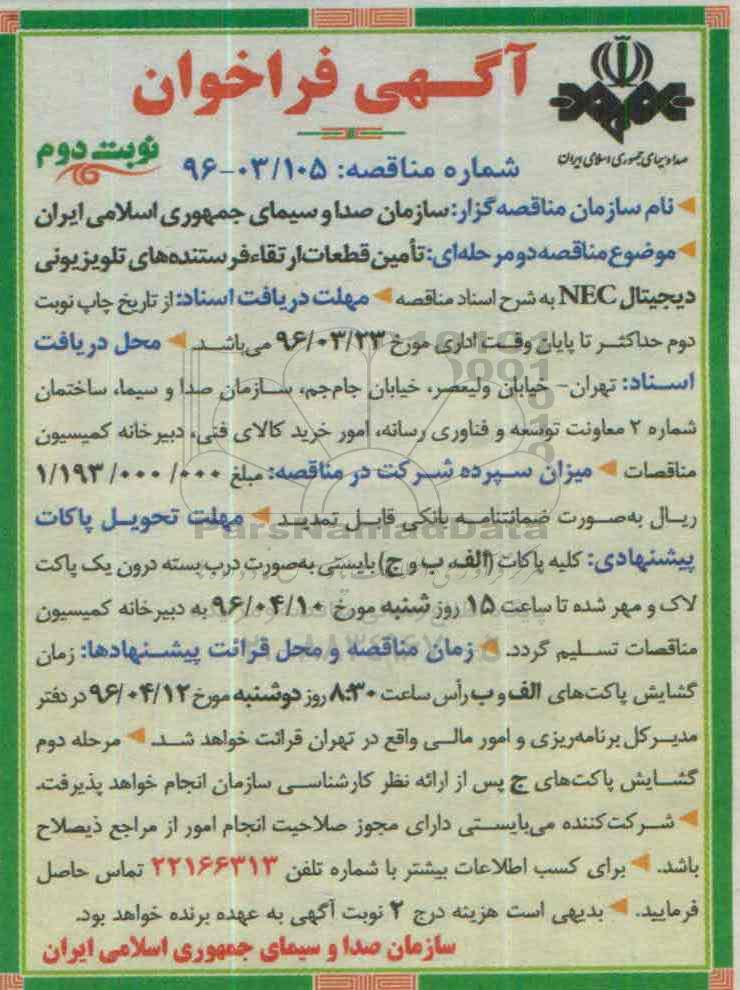 آگهی فراخوان
صدا و سیمای جمهوری اسلامی ایران
نوبت دوم
شماره مناقصه: ۹۶-۰۳/۱۰۵
نام سازمان مناقصه‌گزار: سازمان صدا و سیمای جمهوری اسلامی ایران
موضوع مناقصه دو مرحله‌ای: تأمین قطعات ارتقاء فرستنده‌های تلویزیونی
دیجیتال NEC به شرح اسناد مناقصه مهلت دریافت اسناد: از تاریخ چاپ نوبت
دوم حداکثر تا پایان وقت اداری مورخ ۹۶/۰۳/۲۳ می‌باشد. محل دریافت
اسناد: تهران- خیابان ولیعصر، خیابان جام‌جم، سازمان صدا و سیما، ساختمان
شماره ۲ معاونت توسعه و فناوری رسانه، امور خرید کالای فنی، دبیرخانه کمیسیون
مناقصات میزان سپرده شرکت در مناقصه: مبلغ ۱/۱۹۳/۰۰۰/۰۰۰
ریال به‌صورت ضمانتنامه بانکی قابل تمدید مهلت تحویل پاکات
پیشنهادی: کلیه پاکات (الف، ب و ج) بایستی به‌صورت درب بسته درون یک پاکت
لاک و مهر شده تا ساعت ۱۵ روز شنبه مورخ ۹۶/۰۴/۱۰ به دبیرخانه کمیسیون
مناقصات تسلیم گردد. زمان مناقصه و محل قرائت پیشنهادها: زمان
گشایش پاکت‌های الف و ب رأس ساعت ۸:۳۰ روز دوشنبه مورخ ۹۶/۰۴/۱۲ در دفتر
مدیرکل برنامه‌ریزی و امور مالی واقع در تهران قرائت خواهد شد. مرحله دوم
گشایش پاکت‌های ج پس از ارائه نظر کارشناسی سازمان انجام خواهد پذیرفت.
شرکت‌کننده می‌بایستی دارای مجوز صلاحیت انجام امور از مراجع ذیصلاح
باشد. برای کسب اطلاعات بیشتر با شماره تلفن ۲۲۱۶۶۳۱۳ تماس حاصل
فرمایید. بدیهی است هزینه درج ۲ نوبت آگهی به عهده برنده خواهد بود.
سازمان صدا و سیمای جمهوری اسلامی ایران
ParsNamadData